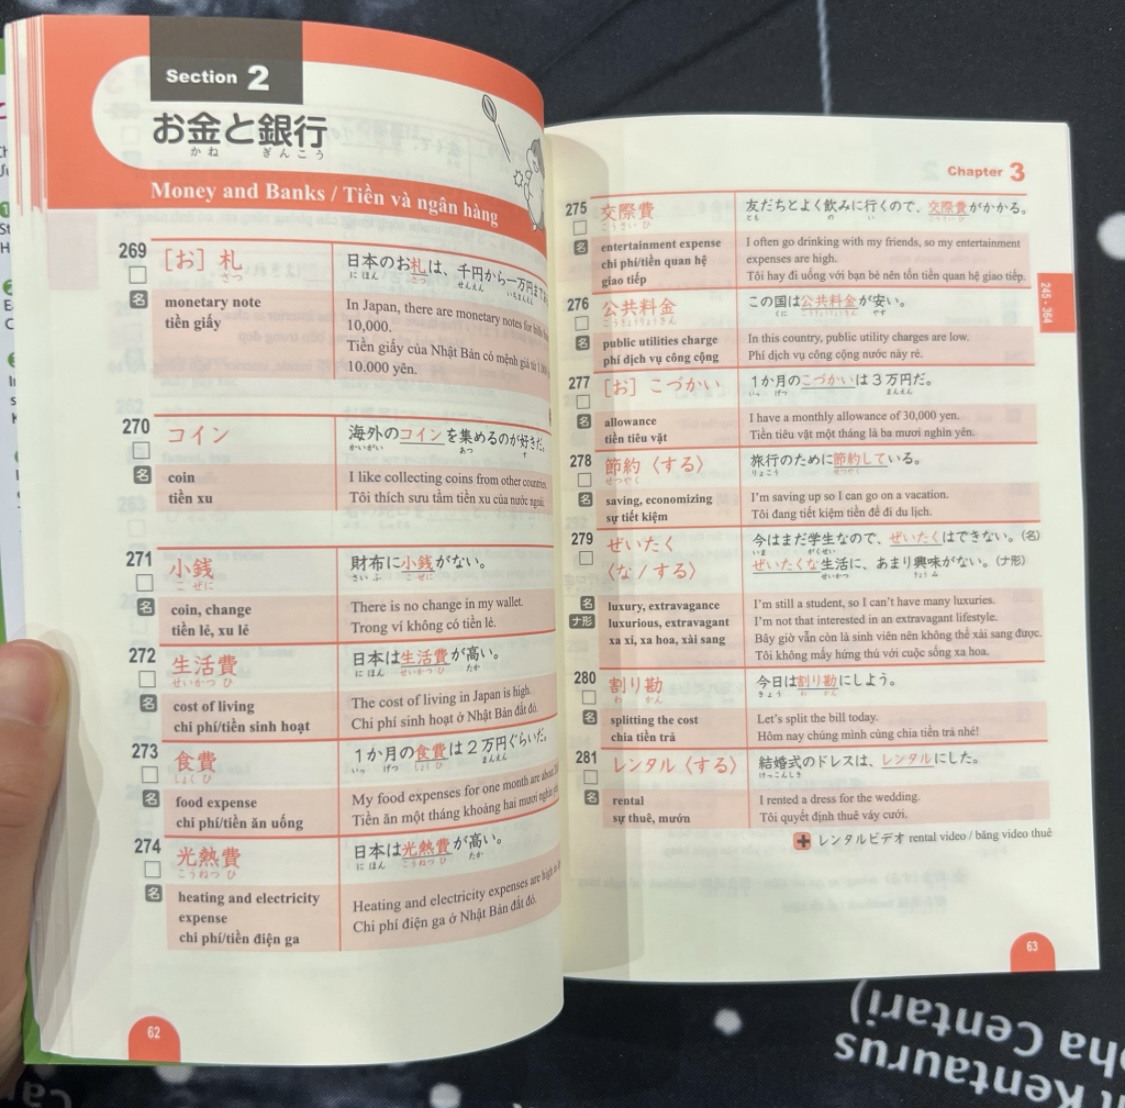 Section 2
お金と銀行
かね ぎんこう
Money and Banks / Tiền và ngân hàng
269
[お] 札
さつ
日本のお札は、千円から一万円まで
にほん さつ せんえん いちまんえん
名
monetary note
tiền giấy
In Japan, there are monetary notes for
10,000.
Tiền giấy của Nhật Bản có mệnh giá từ
10.000 yên.
270
コイン
海外のコインを集めるのが好きだ。
かいがい あつ す
名
coin
tiền xu
I like collecting coins from other countries.
Tôi thích sưu tầm tiền xu của nước ngoài.
271
小銭
こ ぜに
財布に小銭がない。
さいふ こぜに
名
coin, change
tiền lẻ, xu lẻ
There is no change in my wallet.
Trong ví không có tiền lẻ.
272
生活費
せいかつ ひ
日本は生活費が高い。
にほん せいかつひ たか
名
cost of living
chi phí/tiền sinh hoạt
The cost of living in Japan is high.
Chi phí sinh hoạt ở Nhật Bản đắt đỏ.
273
食費
しょく ひ
1か月の食費は2万円ぐらいだ。
いっ げつ しょくひ まんえん
名
food expense
chi phí/tiền ăn uống
My food expenses for one month are about
Tiền ăn một tháng khoảng hai mươi nghìn
274
光熱費
こうねつ ひ
日本は光熱費が高い。
にほん こうねつひ たか
名
heating and electricity
expense
chi phí/tiền điện ga
Heating and electricity expenses are high
Chi phí điện ga ở Nhật Bản đắt đỏ.
62
Chapter 3
275
交際費
こうさい ひ
友だちとよく飲みに行くので、交際費がかかる。
とも の い こうさいひ
名
entertainment expense
chi phí/tiền quan hệ
giao tiếp
I often go drinking with my friends, so my entertainment
expenses are high.
Tôi hay đi uống với bạn bè nên tốn tiền quan hệ giao tiếp.
276
公共料金
こうきょうりょうきん
この国は公共料金が安い。
くに こうきょうりょうきん やす
名
public utilities charge
phí dịch vụ công cộng
In this country, public utility charges are low.
Phí dịch vụ công cộng nước này rẻ.
277
[お] こづかい
1か月のこづかいは3万円だ。
いっ げつ まんえん
名
allowance
tiền tiêu vặt
I have a monthly allowance of 30,000 yen.
Tiền tiêu vặt một tháng là ba mươi nghìn yên.
278
節約〈する〉
せつやく
旅行のために節約している。
りょこう せつやく
名
saving, economizing
sự tiết kiệm
I'm saving up so I can go on a vacation.
Tôi đang tiết kiệm tiền để đi du lịch.
279
ぜいたく
〈な / する〉
今はまだ学生なので、ぜいたくはできない。(名)
いま がくせい
ぜいたくな生活に、あまり興味がない。(ナ形)
せいかつ きょうみ
名
ナ形
luxury, extravagance
luxurious, extravagant
xa xỉ, xa hoa, xài sang
I'm still a student, so I can't have many luxuries.
I'm not that interested in an extravagant lifestyle.
Bây giờ vẫn còn là sinh viên nên không thể xài sang được.
Tôi không mấy hứng thú với cuộc sống xa hoa.
280
割り勘
わ かん
今日は割り勘にしよう。
きょう わ かん
名
splitting the cost
chia tiền trả
Let's split the bill today.
Hôm nay chúng mình cùng chia tiền trả nhé!
281
レンタル〈する〉
結婚式のドレスは、レンタルにした。
けっこんしき
名
rental
sự thuê, mướn
I rented a dress for the wedding.
Tôi quyết định thuê váy cưới.
+ レンタルビデオ rental video / băng video thuê
245 - 364
63
Kentaurus
Centari)